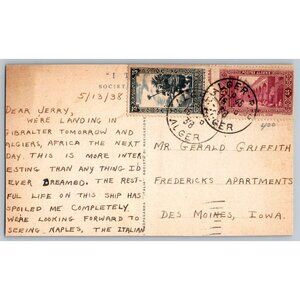 "I T
SOCIET
5/13/38
DEAR JERRY,
WERE LANDING IN
GIBRALTER TOMORROW AND
ALGIERS, AFRICA THE NEXT
DAY. THIS IS MORE INTER
ESTING THAN ANY THING I'D
EVER DREAMED. THE REST-
FUL LIFE ON THIS SHIP HAS
SPOILED ME COMPLETELY.
WERE LOOKING FORWARD TO
SEEING NAPLES, THE ITALIAN
ALGER
ALGER
ALGER
400
MR GERALD GRIFFITH
FREDERICKS APARTMENTS
DES MOINES, IOWA.